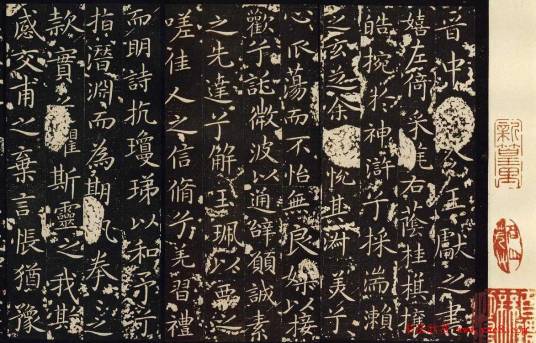 晉中王獻之書
嬉左倚采旄右蔭桂旗攘
皓捥於神滸兮採湍瀨
之玄芝余悅其淑美兮
心振蕩而不怡無良媒以接
歡兮託微波以通辭願誠素
之先達兮解玉珮以要之
嗟佳人之信脩兮羌習禮
而明詩抗瓊珶以和予兮
指潛淵而為期拳之
款實懼斯靈之我欺
感交甫之棄言悵猶豫